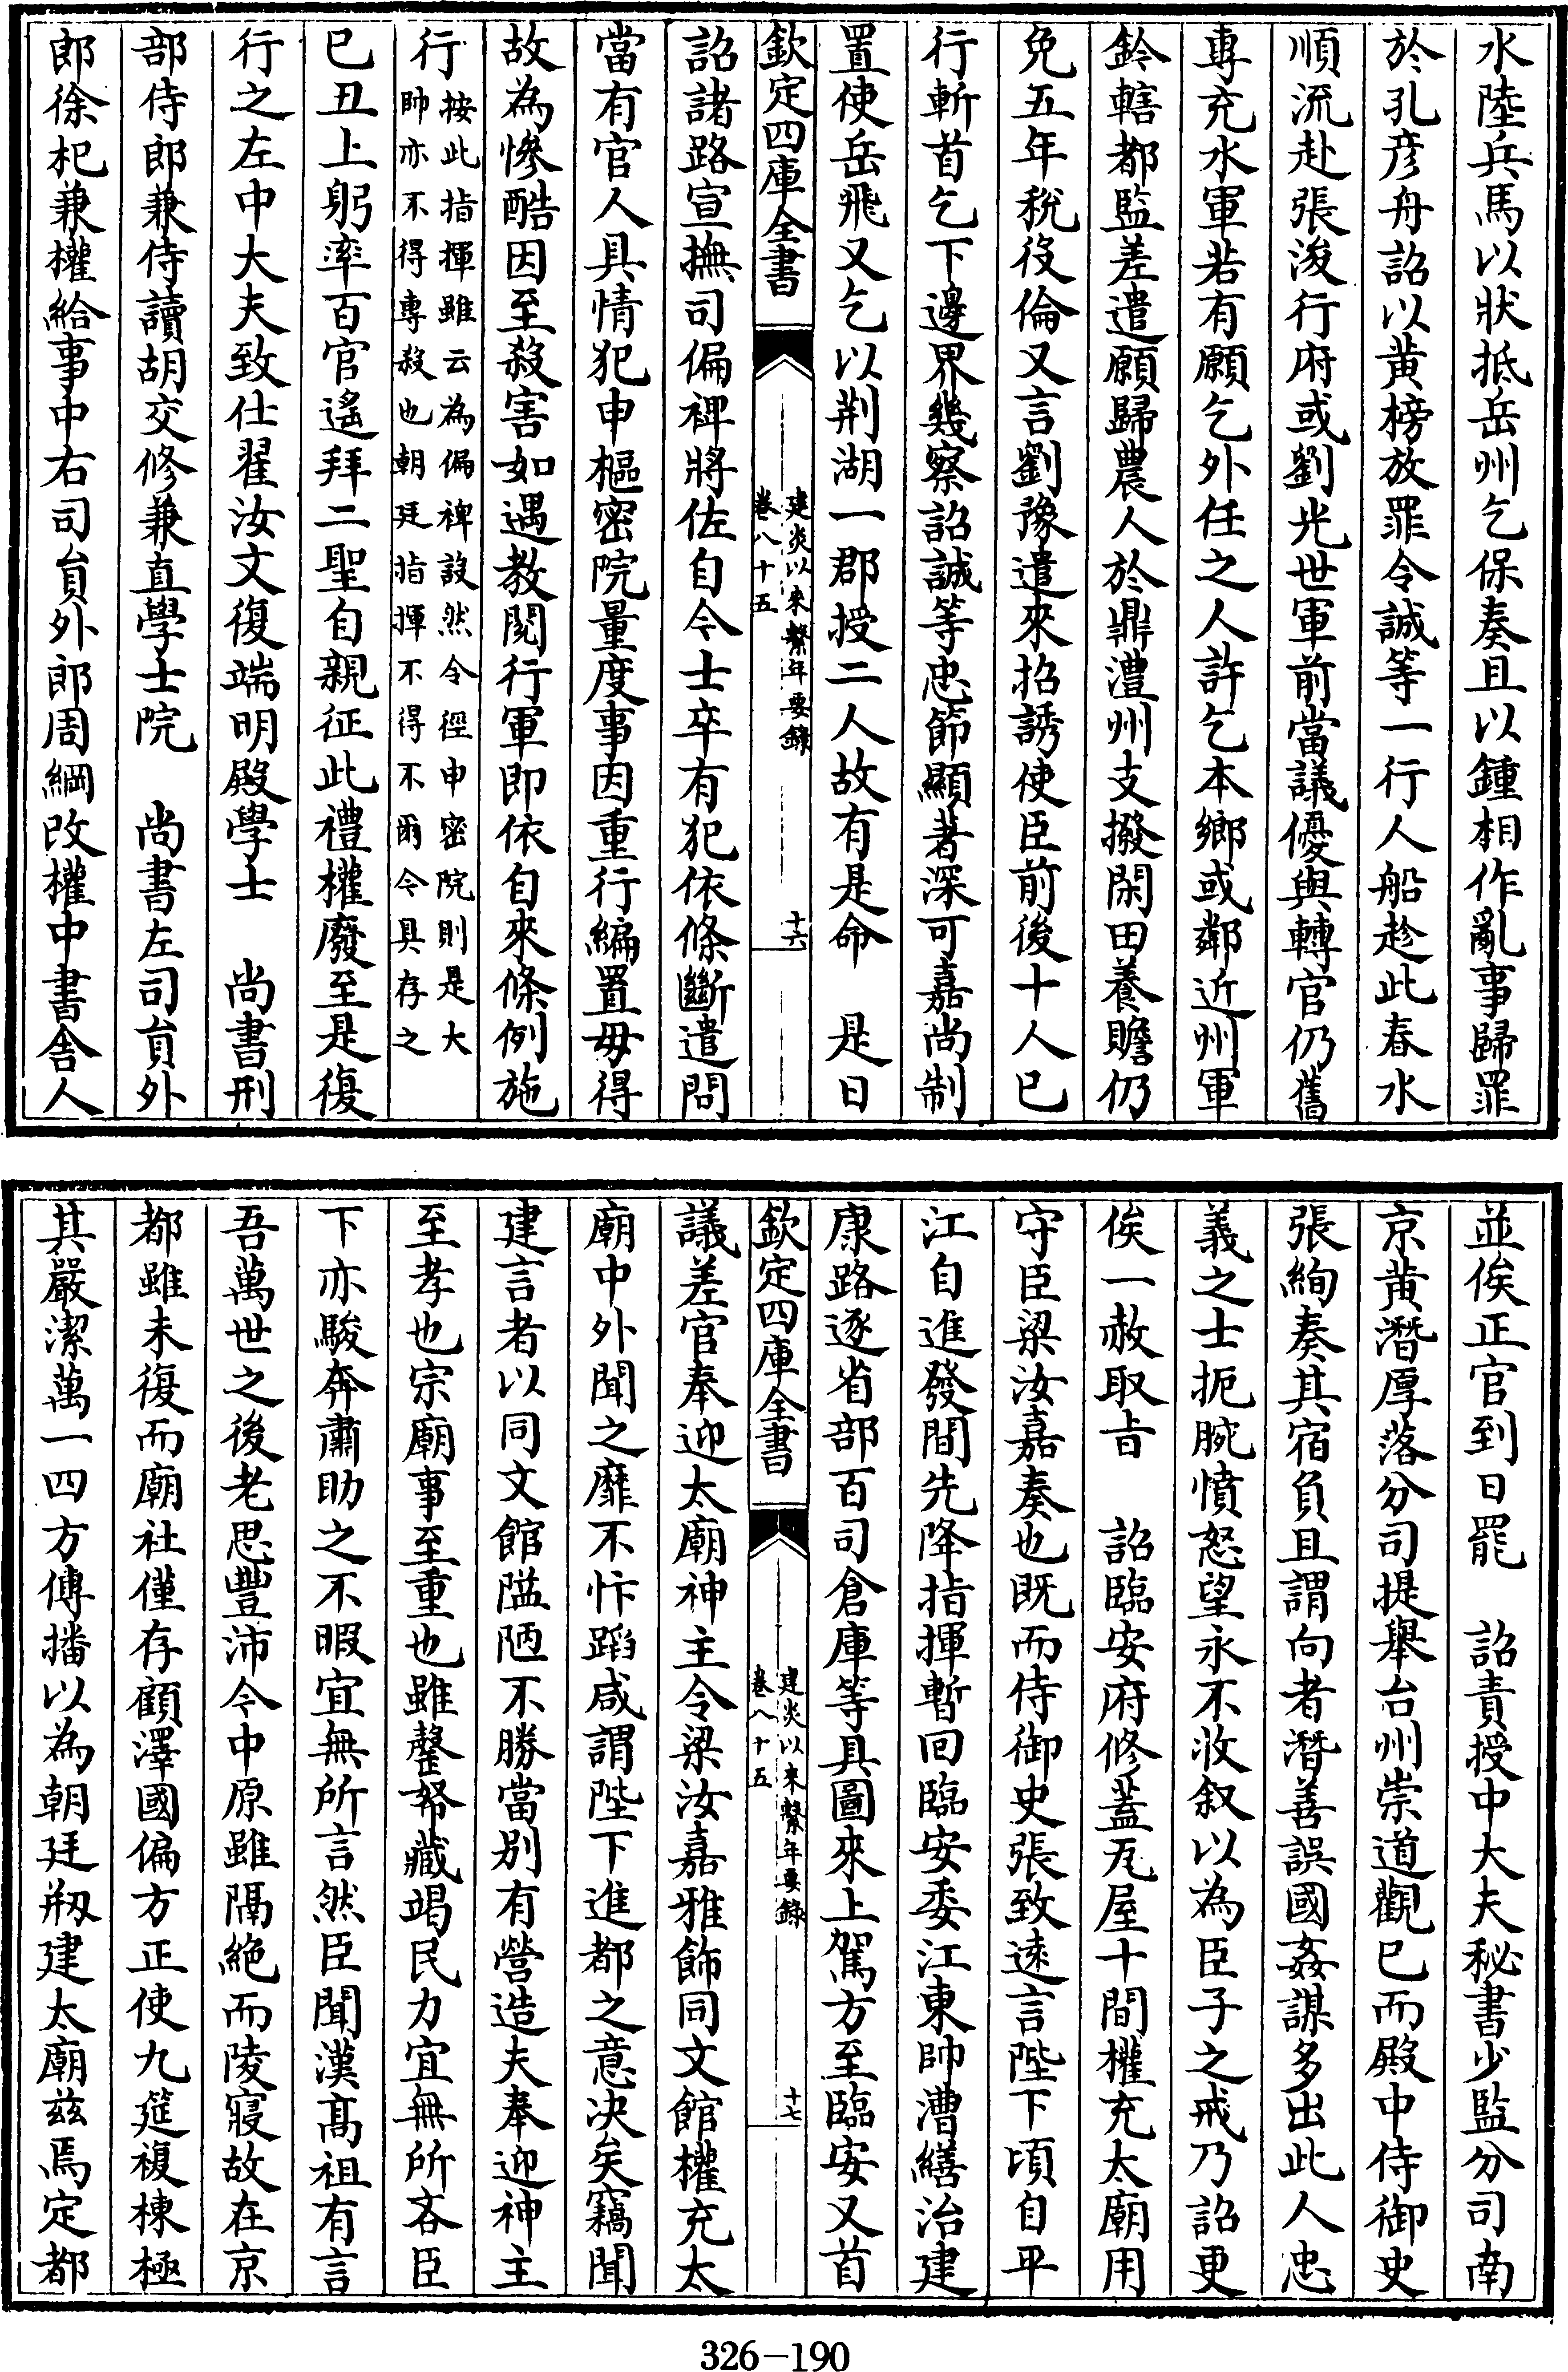 水陸兵馬以狀抵岳州乞保奏且以鍾相作亂事歸罪
於孔彦舟詔以黄榜放罪令誠等一行人船趁此春水
順流赴張浚行府或劉光世軍前當議優與轉官仍舊
専充水軍若有願乞外任之人許乞本鄉或鄰近州軍
鈐轄都監差遣願歸農人於鼎澧州支撥閑田養贍仍
免五年稅役倫又言劉豫遣來招誘使臣前後十人已
行斬首乞下邊界幾察詔誠等忠節顯著深可嘉尚制
置使岳飛又乞以荆湖一郡授二人故有是命　是日
欽定四庫全書
建炎以來繫年要錄
卷八十五
十六
詔諸路宣撫司偏裨將佐自今士卒有犯依條斷遣問
當有官人具情犯申樞密院量度事因重行編置毋得
故為慘酷因至殺害如遇教閱行軍即依自來條例施
行按此指揮雖云為偏裨設然令徑申密院則是大
帥亦不得專殺也朝廷指揮不得不爾今具存之
已丑上躬率百官遙拜二聖自親征此禮權廢至是復
行之左中大夫致仕翟汝文復端明殿學士　尚書刑
部侍郎兼侍讀胡交修兼直學士院　尚書左司員外
郎徐杞兼權給事中右司員外郎周綱改權中書舍人
並俟正官到日罷　詔責授中大夫秘書少監分司南
京黄潛厚落分司提舉台州崇道觀已而殿中侍御史
張絢奏其宿負且謂向者潛善誤國姦謀多出此人忠
義之士扼腕憤怒望永不收叙以為臣子之戒乃詔更
俟一赦取旨　詔臨安府修蓋瓦屋十間權充太廟用
守臣梁汝嘉奏也既而侍御史張致逺言陛下頃自平
江自進發間先降指揮暫回臨安委江東帥漕繕治建
康路逐省部百司倉庫等具圖來上駕方至臨安又首
欽定四庫全書
建炎以來繫年要錄
卷八十五
十七
議差官奉迎太廟神主令梁汝嘉雅飾同文館權充太
廟中外聞之靡不忭蹈咸謂陛下進都之意決矣竊聞
建言者以同文館隘陋不勝當别有營造夫奉迎神主
至孝也宗廟事至重也雖罄帑藏竭民力宜無所吝臣
下亦駿奔肅助之不暇宜無所言然臣聞漢髙祖有言
吾萬世之後老思豐沛今中原雖隔絶而陵寢故在京
都雖未復而廟社僅存顧澤國偏方正使九筵複棟極
其嚴潔萬一四方傳播以為朝廷剏建太廟兹焉定都
326-190